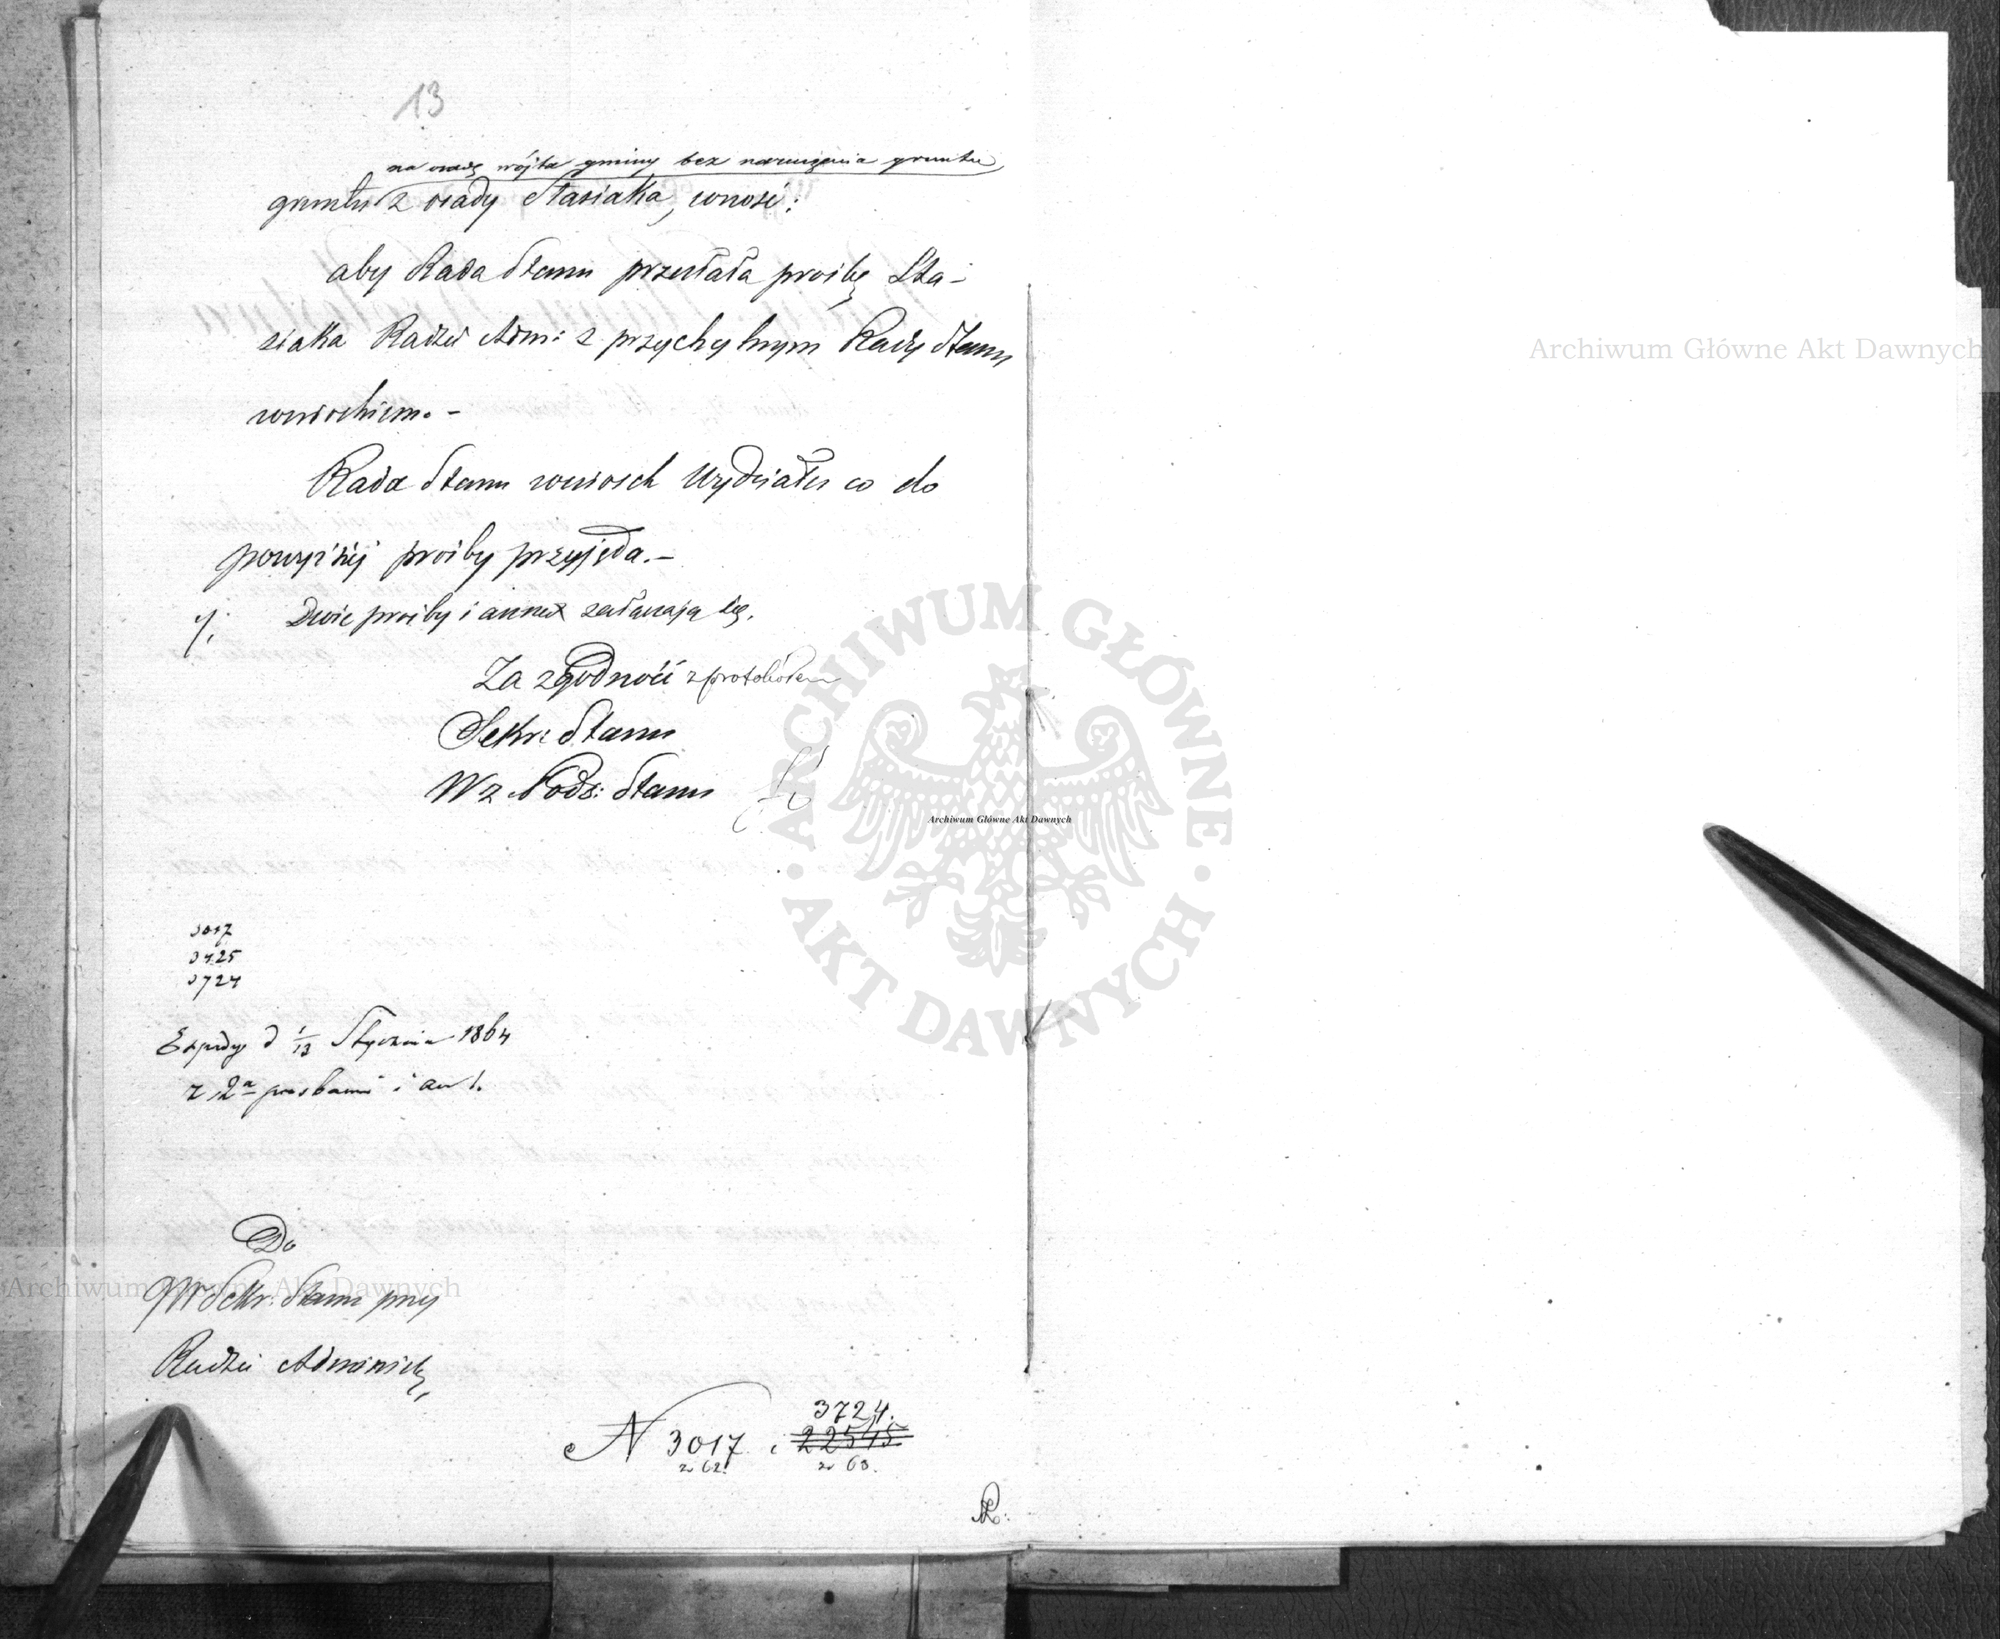 13
na osadę wójta gminy bez naruszenia gruntu
gruntu z osady Stasiaka, wnosi:
aby Rada Stanu przesłała prośbę Sta-
siaka Radzie Adm: z przychylnym Rady Stanu
wnioskiem. -
Rada Stanu wniosek Wydziału co do
powyższej prośby przyjęła. -
Dwie prośby i annex załączają się.
Za zgodność z protokółem
Sekr: Stanu
Wz Pods: Stanu
3017
3425
3724
Exped d 1/13 Stycznia 1864
z 2a prosbami i an 1.
Do
JW Sekr: Stanu przy
Radzie Administr.
3724.
N 3017 i 22545
z 62. z 63.
Archiwum Główne Akt Dawnych
Archiwum Główne Akt Dawnych
ARCHIWUM GŁÓWNE AKT DAWNYCH
Archiwum Główne Akt Dawnych